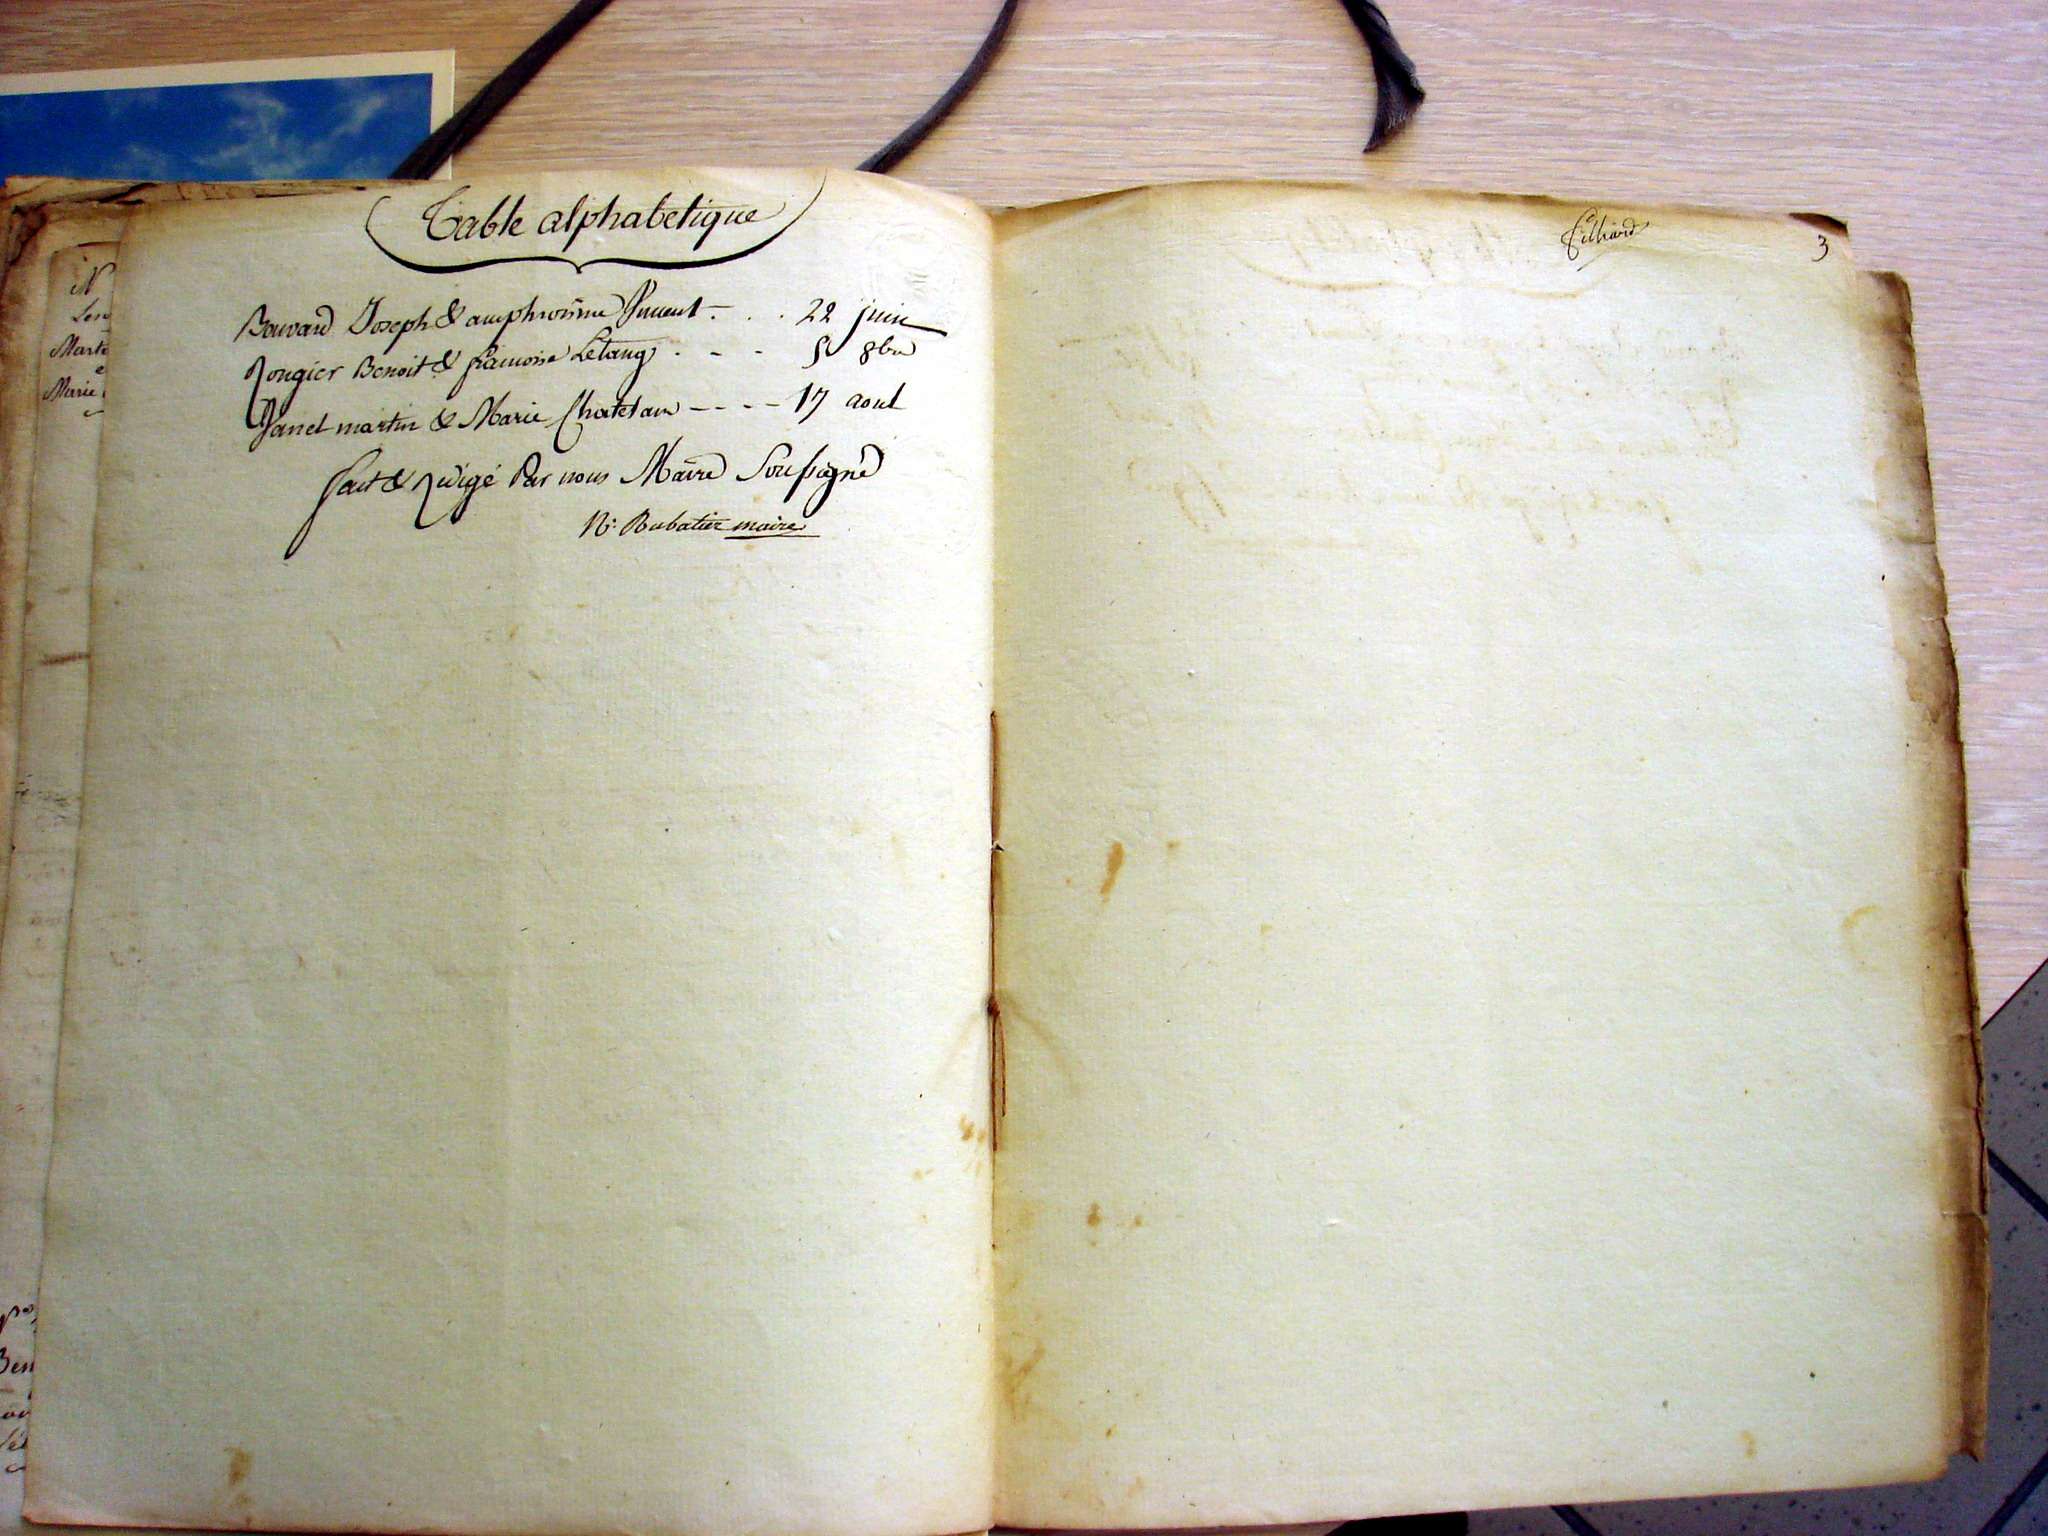 Table alphabetique
Bouvard Joseph & amphrosine . . . 22 juin
Rougier Benoit & francoise Letang . - - 5 8bre
Janet martin & Marie Chatelain - - - - 17 aout
fait & redigé Par nous Maire Soussigné
N: Rubatier maire
3
N
Mart
Marie
Ben